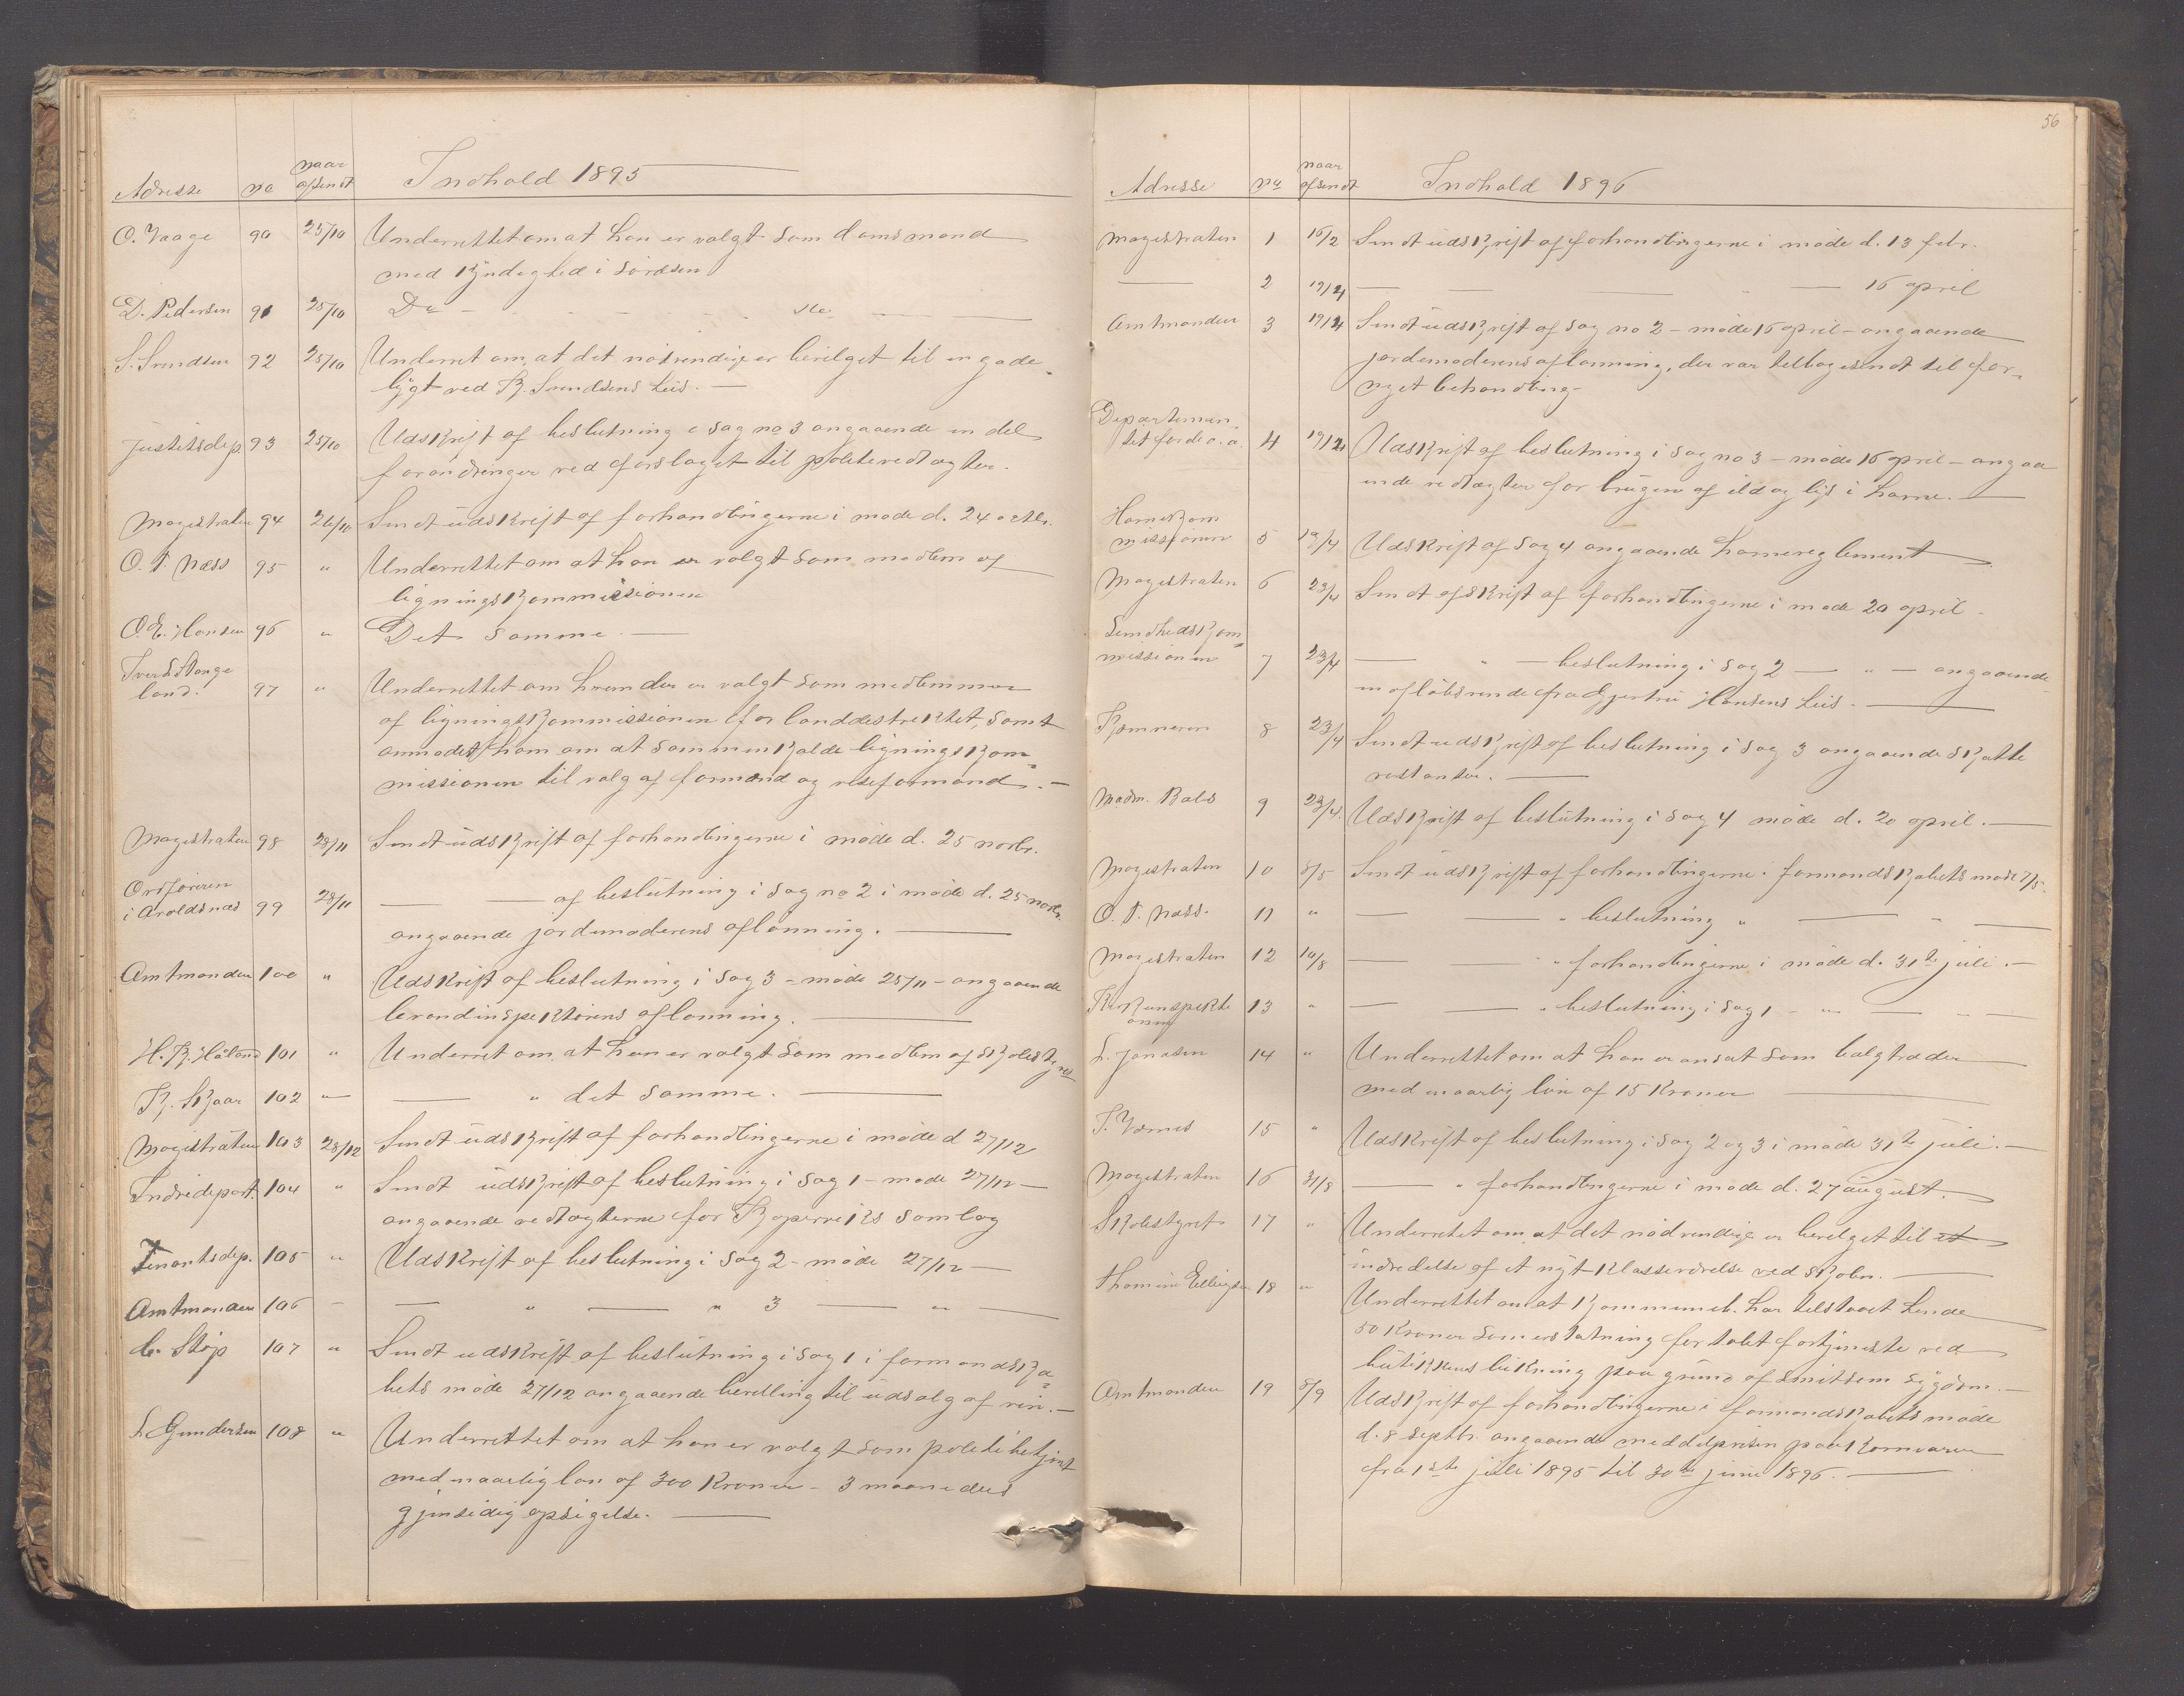 Adresse no naar afsendt Indhold 1895
O. Vaage 90 25/10 Underrettet om at han er valgt som domsmand
med kyndighed i sövæsen
D. Pedersen 91 25/10 Do — do —
S. Svendsen 92 25/10 Underret om, at det nödvendige er bevilget til en gade-
lygt ved K. Svendsens hus. —
Justitsdep 93 25/10 Udskrift af beslutning i sag no 3 angaaende en del
forandringer ved forslaget til politivedtægter.
Magistraten 94 26/10 Sendt udskrift af forhandlingerne i møde d. 24 octbr.
O. T. Næss 95 " Underrettet om at han er valgt som medlem af
ligningskommissionen
O. E. Hansen 96 " Det samme. —
Iver S. Stange
land. 97 " Underrettet om hvem der er valgt som medlemmer
af ligningskommissionen for landdestriktet, samt
anmodet ham om at sammenkalde ligningskom-
missionen til valg af formand og viseformand. —
Magistraten 98 28/11 Sendt udskrift af forhandlingerne i möde d. 25 novbr.
Ordföreren
i Avaldsnæs 99 28/11 — — af beslutning i sag no 2 i möde d. 25 novbr.
angaaende jordemoderens aflönning. —
Amtmanden 100 " Udskrift af beslutning i sag 3 - möde 25/11 - angaaende
brandinspektörens aflönning. —
H. K. Håland 101 " Underret om, at han er valgt som medlem af skolestyret
K. Skaar 102 " — " det samme. —
Magistraten 103 28/12 Sendt udskrift af forhandlingerne i möde d 27/12
Indredepart. 104 " Sendt udskrift af beslutning i sag 1 - möde 27/12 —
angaaende vedtægterne for Kopervik's samlag
Finantsdep. 105 " Udskrift af beslutning i sag 2 - möde 27/12 —
Amtmanden 106 — — " — " 3 — " —
C. Stöp 107 " Sendt udskrift af beslutning i sag 1 i formandska-
bets möde 27/12 angaaende bevilling til udsalg af vin. —
L. Gundersen 108 " Underrettet om at han er valgt som politibetjent
med en aarlig lön af 300 kroner - 3 maaneders
gjensidig opsigelse. —
56
Adresse no naar afsendt Indhold 1896
Magistraten 1 16/2 Sendt udskrift af forhandlingerne i möde d. 13 febr.
— 2 19/4 — — — " — 16 april
Amtmanden 3 19/4 Sendt udskrift af sag no 2 - möde 16 april - angaaende
jordemoderens aflönning, der var tilbagesendt til for-
nyet behandling
Departemen-
tet for de o. a. 4 19/4 Udskrift af beslutning i sag no 3 - möde 16 april - angaa
ende vedtægter for brugen af ild og lys i havne. —
Havnekom
missionen 5 19/4 Udskrift af sag 4 angaaende havnereglement
Magistraten 6 23/4 Sendt afskrift af forhandlingerne i möde 20 april -
Sundhedskom-
missionen 7 23/4 — " — beslutning i sag 2 — " — angaaende
en aflöbsrende fra Gjertrü Hansens hus. —
Kæmneren 8 23/4 Sendt udskrift af beslutning i sag 3 angaaende skatte
restanser. —
Madm. Bals 9 23/4. Udskrift af beslutning i sag 4 möde d. 20 april. —
Magistraten 10 8/5 Sendt udskrift af forhandlingerne i formandskabets möde 7/5.
O. T. Næss. 11 " — — " beslutning " — " —
Magistraten 12 10/8 — — " forhandlingerne i möde d. 31te juli. —
13 " — — " beslutning i sag 1 - " — —
L. Jonasen 14 " Underrettet om at han er ansat som balgtræder
med en aarlig lön af 15 kroner —
T. Værnes 15 " Udskrift af beslutning i sag 2 og 3 i möde 31te juli. —
Magistraten 16 31/8 — " forhandlingerne i möde d. 27 august.
Skolestyret 17 " Underrettet om, at det nödvendige er bevilget til et
indredelse af et nyt klasseværelse ved skolen. —
Thomine 18 " Underrettet om at kommuneb. har tilstaaet hende
50 kroner som erstatning for tabt fortjeneste ved
butikkens lukning paa grund af smitsom sygdom. —
Amtmanden 19 8/9 Udskrift af forhandlingerne i formandskabets möde
d. 8 septbr. angaaende middelprisen paa kornvarer
fra 1ste juli 1895 til 30te juni 1896. —